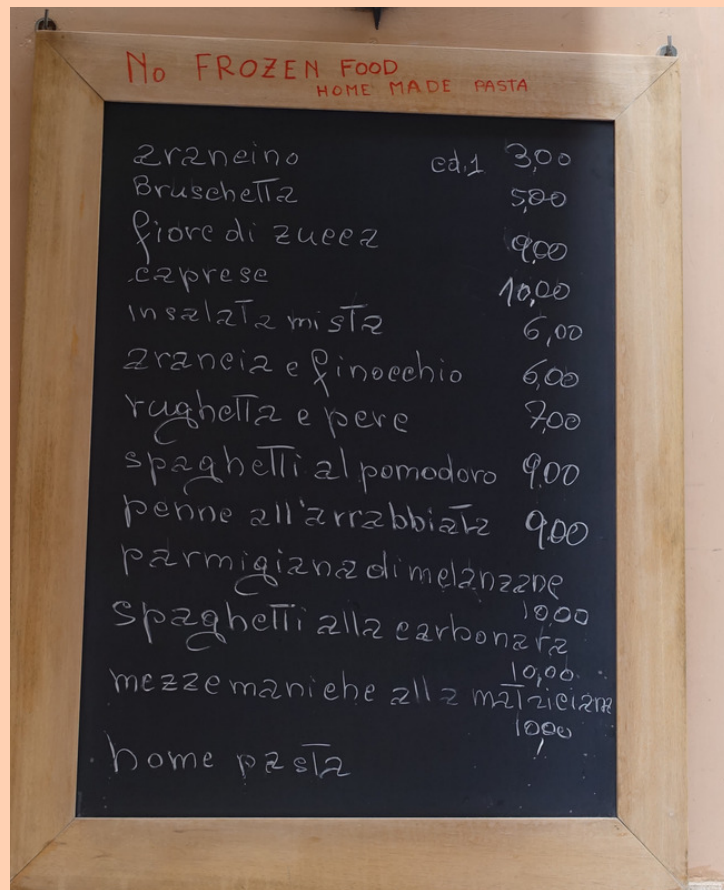 No FROZEN FOOD
HOME MADE PASTA
arancino cd.1 3,00
Bruschetta 5,00
fiore di zucca 9,00
caprese 10,00
insalata mista 6,00
arancia e finocchio 6,00
rughetta e pere 7,00
spaghetti al pomodoro 9,00
penne all'arrabbiata 9,00
parmigiana di melanzane
10,00
spaghetti alla carbonara
10,00
mezze maniche alla matriciana
10,00
home pasta